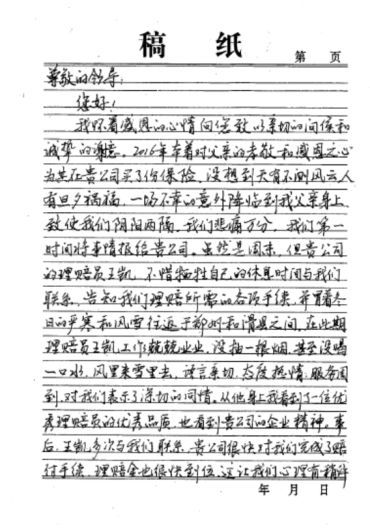 稿 纸
第 页
尊敬的领导:
您好!
我怀着感恩的心情向您致以亲切的问候和
诚挚的谢意。2016年本着对父亲的孝敬和感恩之心
为其在贵公司买了份保险,没想到天有不测风云人
有旦夕祸福,一场不幸的意外降临到我父亲身上,
致使我们阴阳两隔,我们悲痛万分,我们第一
时间将事情报给贵公司。虽然是周末,但贵公司
的理赔员王凯,不惜牺牲自己的休息时间与我们
联系,告知我们理赔所需的各项手续,并冒着冬
日的严寒和风雪往返于郑州和滑县之间,在此期
理赔员王凯工作兢兢业业,没抽一根烟,甚至没喝
一口水,风里来雪里去,语言亲切,态度热情,服务周
到,对我们表示了深切的同情。从他身上我看到了一位优
秀理赔员的优秀品质,也看到贵公司的企业精神。事
后,王凯多次与我们联系,贵公司很快对我们完成了赔
付手续,理赔金也很快到位,这让我们心理有稍许
年 月 日